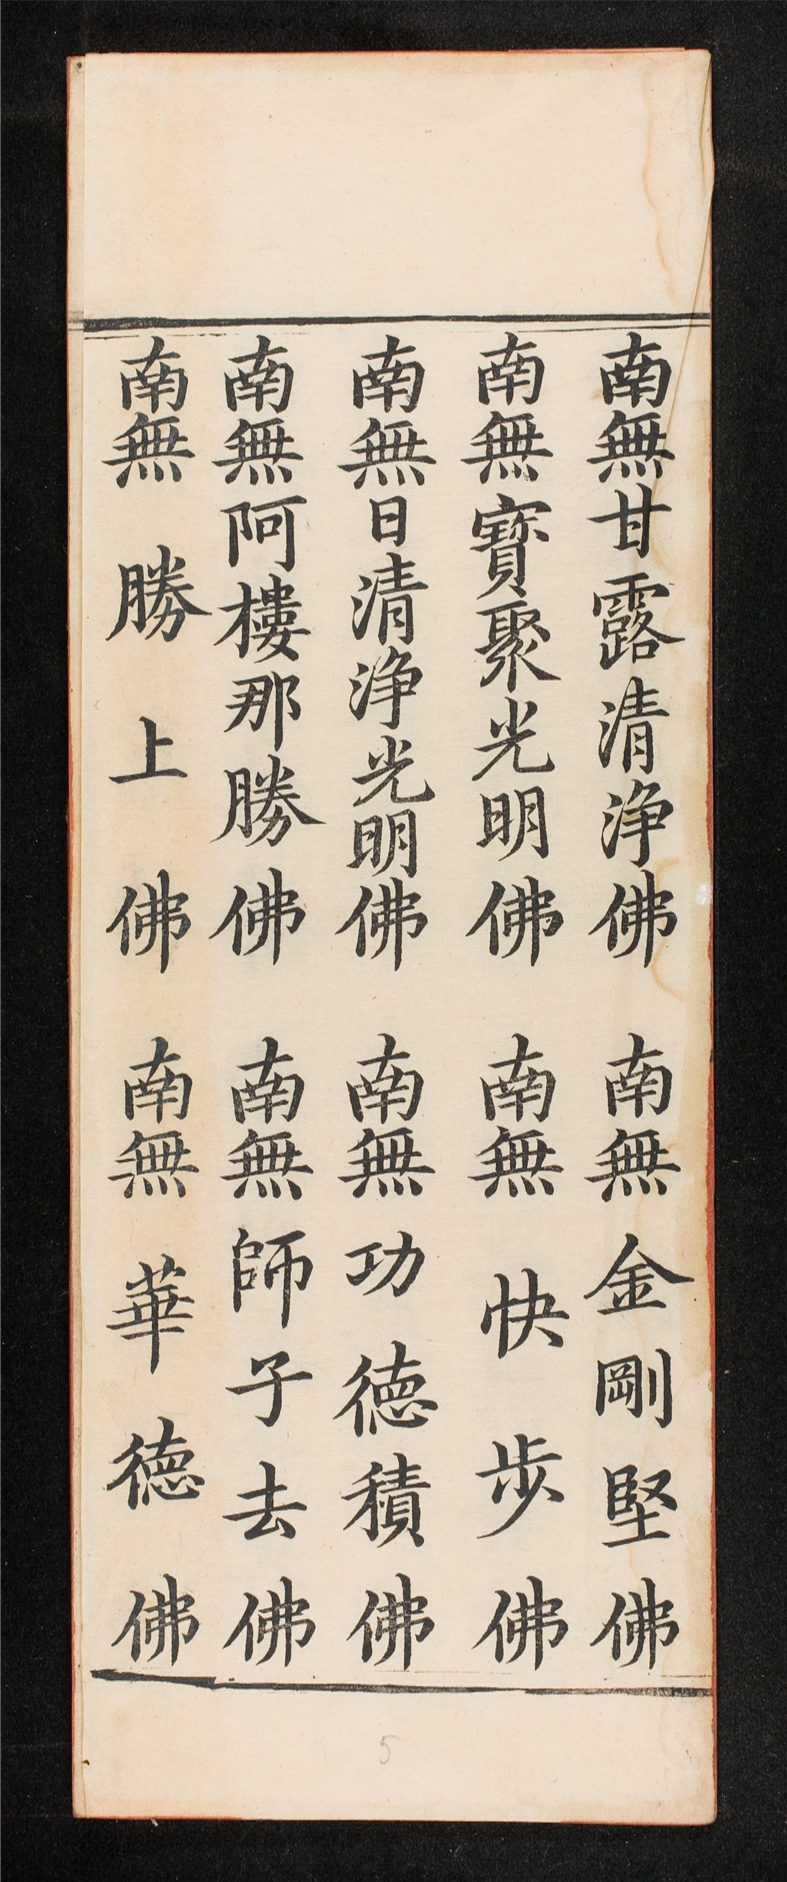 南無甘露清淨佛 南無金剛堅佛
南無寶聚光明佛 南無快步佛
南無日清淨光明佛 南無功德積佛
南無阿樓那勝佛 南無師子去佛
南無勝上佛 南無華德佛
5